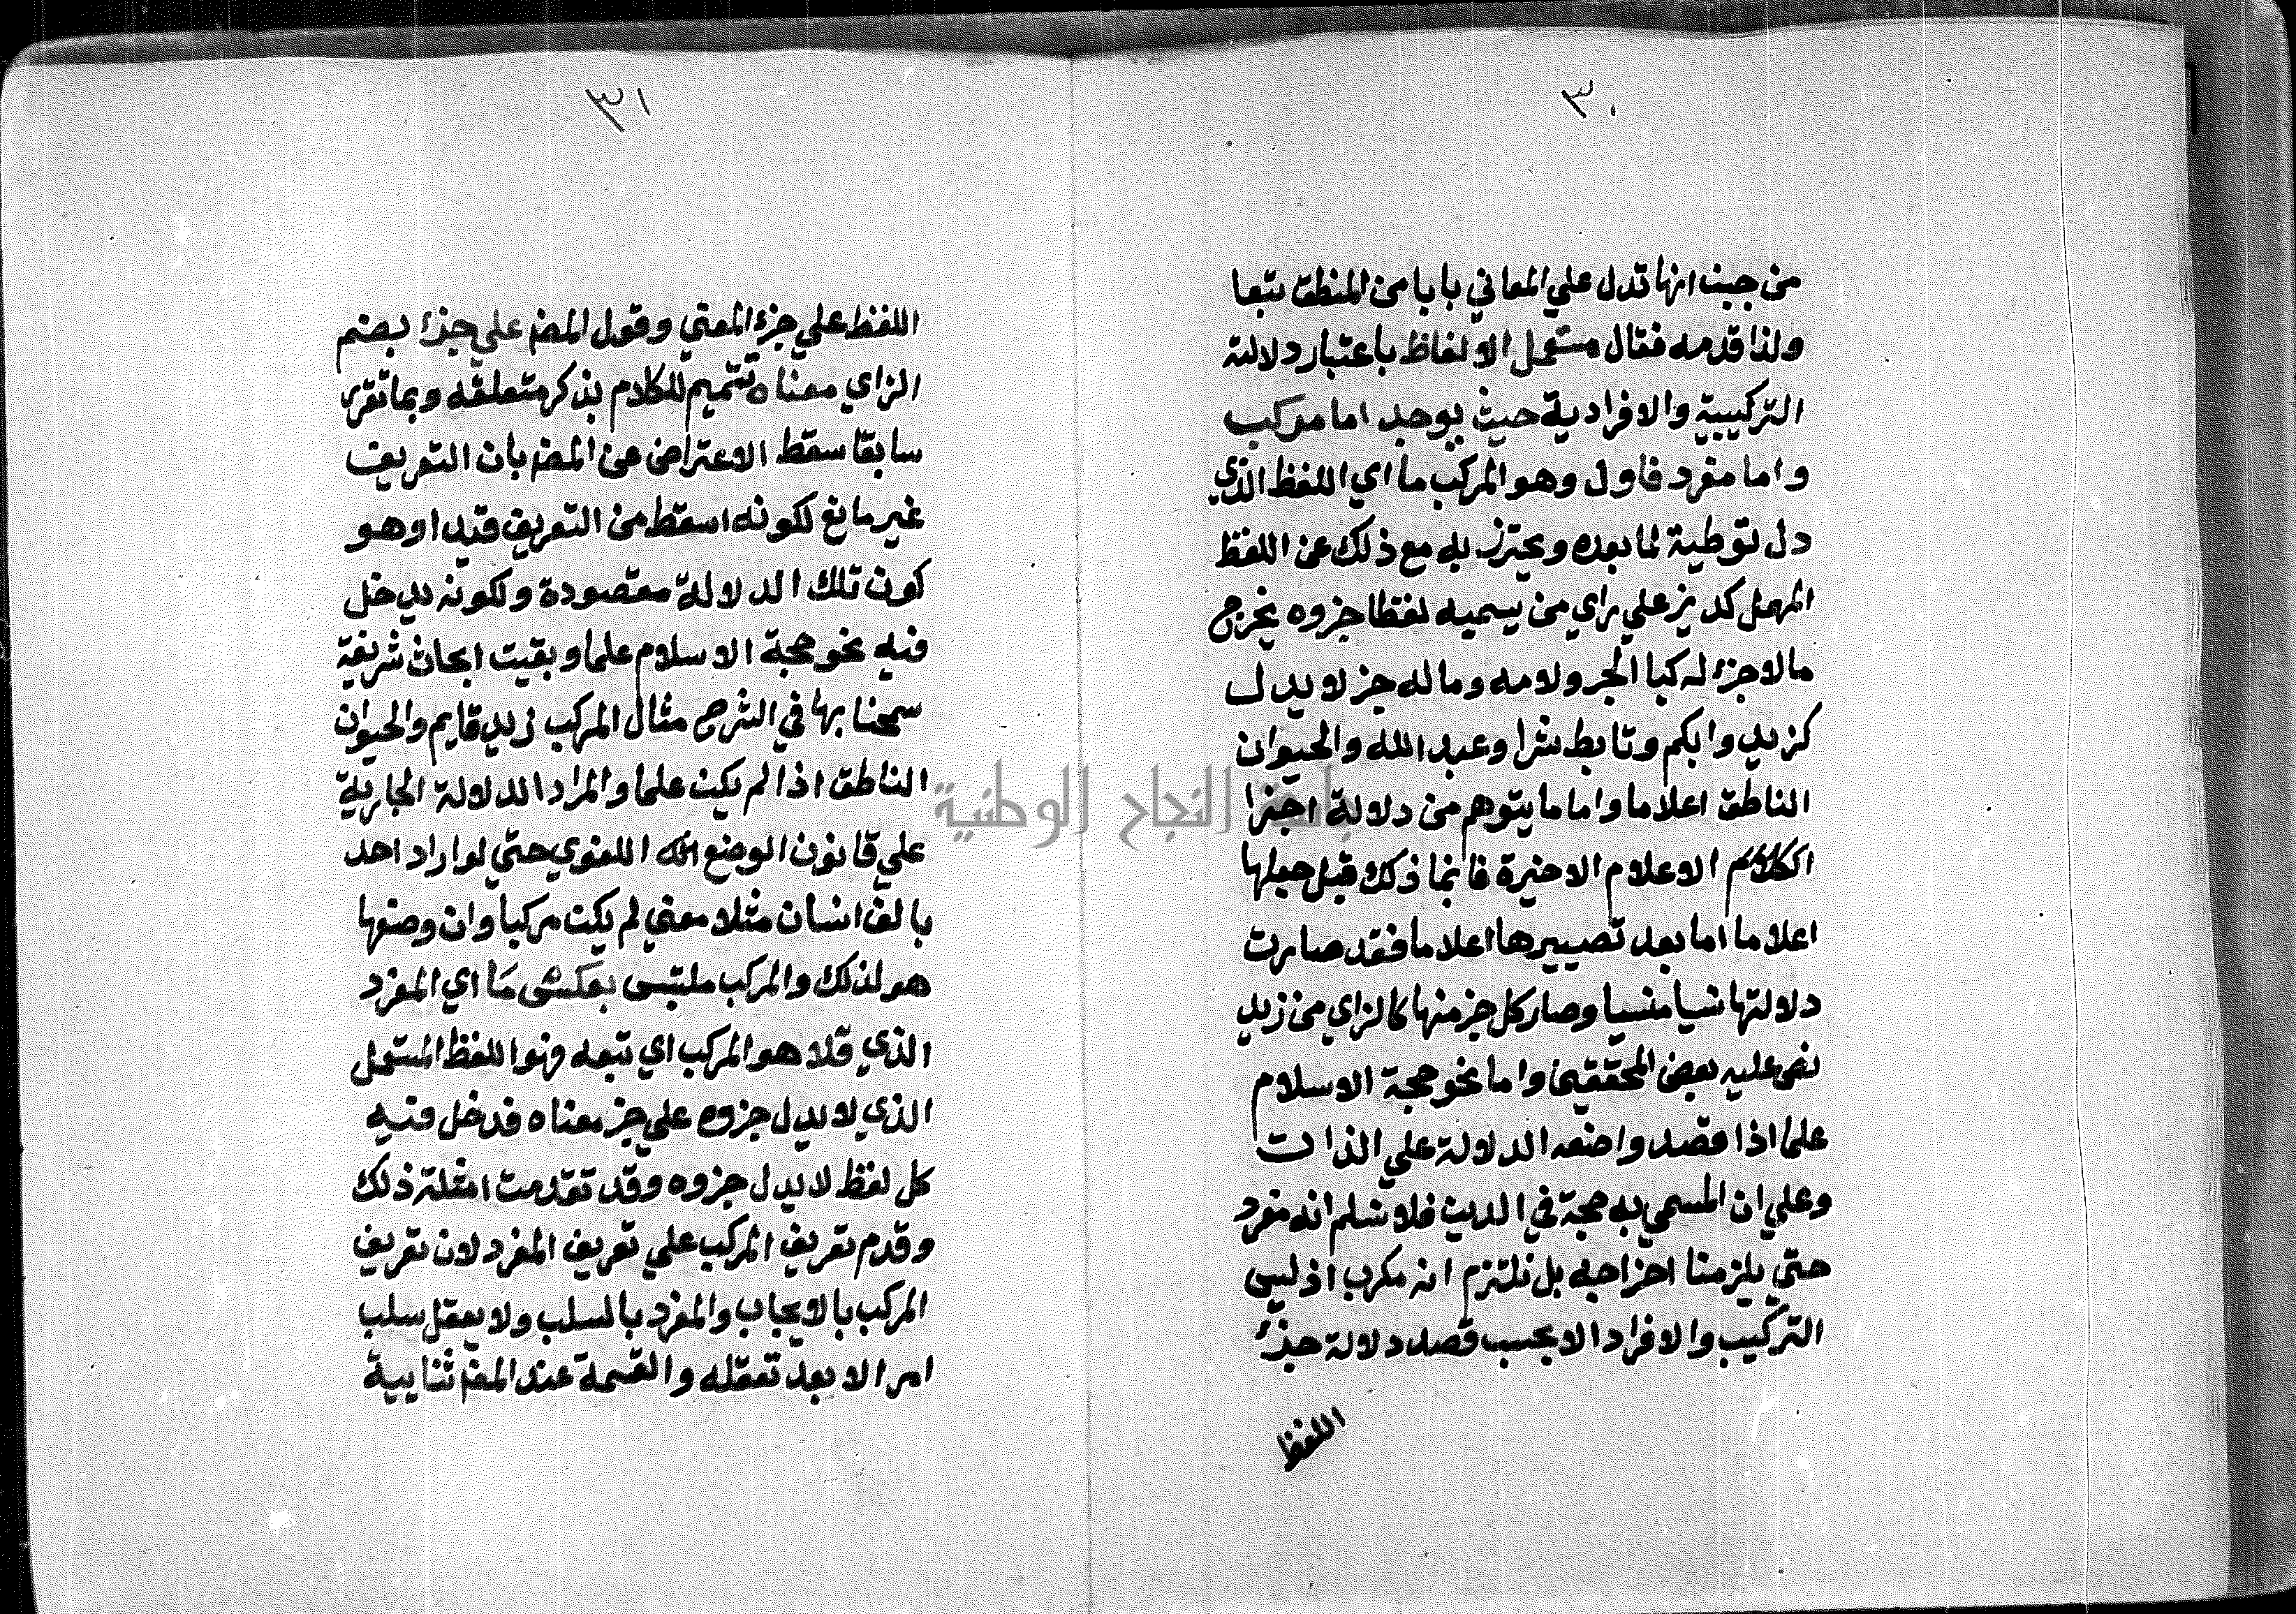 ٣٠
من حيث انها تدل علي المعاني بابا من المنطق تبعا
ولذا قدمه فقال مستعمل الالفاظ باعتبار دلالته
التركيبية والافرادية حيث يوجد اما مركب
واما مفرد فاول وهو المركب ما اي اللفظ الذي
دل توطية لما بعده ويحترز به مع ذلك عن اللفظ
المهمل كديز علي راي من يسميه لفظا جزوه يخرج
مالا جزء له كبا الجر ولامه وماله جز لا يدل
كزيد وابكم وتابط شرا وعبد الله والحيوان
الناطق اعلاما واما ما يتوهم من دلالة اجزا
الاعلام الاخيرة فانما ذلك قبل جعلها
اعلاما اما بعد تصييرها اعلاما فقد صارت
دلالتها نسيا منسيا وصار كل جز منها كالزاي من زيد
نص عليه بعض المحققين واما نحو حجة الاسلام
علما اذا قصد واضعه الدلالة علي الذات
وعلي ان المسمي به حجة في الدين فلا نسلم انه مفرد
حتي يلزمنا اخراجه بل نلتزم انه مكرب اذ ليس
التركيب والافراد الا بحسب قصد دلالة جزء
اللفظ
٣١
اللفظ علي جزء المعني وقول المص علي جزء بضم
الزاي معناه تتميم للكلام بذكر متعلقه وبما تقرر
سابقا سقط الاعتراض عن المص بان التعريف
غير مانع لكونه اسقط من التعريف قيدا وهو
كون تلك الدلالة مقصودة ولكونه يدخل
فيه نحو حجة الاسلام علما وبقيت ابحاث شريفة
سمحنا بها في الشرح مثال المركب زيد قايم والحيوان
الناطق اذا لم يكن علما والمراد الدلالة الجارية
علي قانون الوضع اللغوي حتي لو اراد احد
بالف انسان مثلا معني لم يكن مركبا وان وضعها
هو لذلك والمركب ملتبس بعكس ما اي المفرد
الذي تلا هو المركب اي تبعه فهو اللفظ المستعمل
الذي لا يدل جزوه علي جز معناه فدخل فيه
كل لفظ لا يدل جزوه وقد تقدمت امثلة ذلك
وقدم تعريف المركب علي تعريف المفرد لان تعريف
المركب بالايجاب والمفرد بالسلب ولا يعقل سلب
امر الا بعد تعقله والقسمة عند المص ثنايية
جامعة النجاح الوطنية